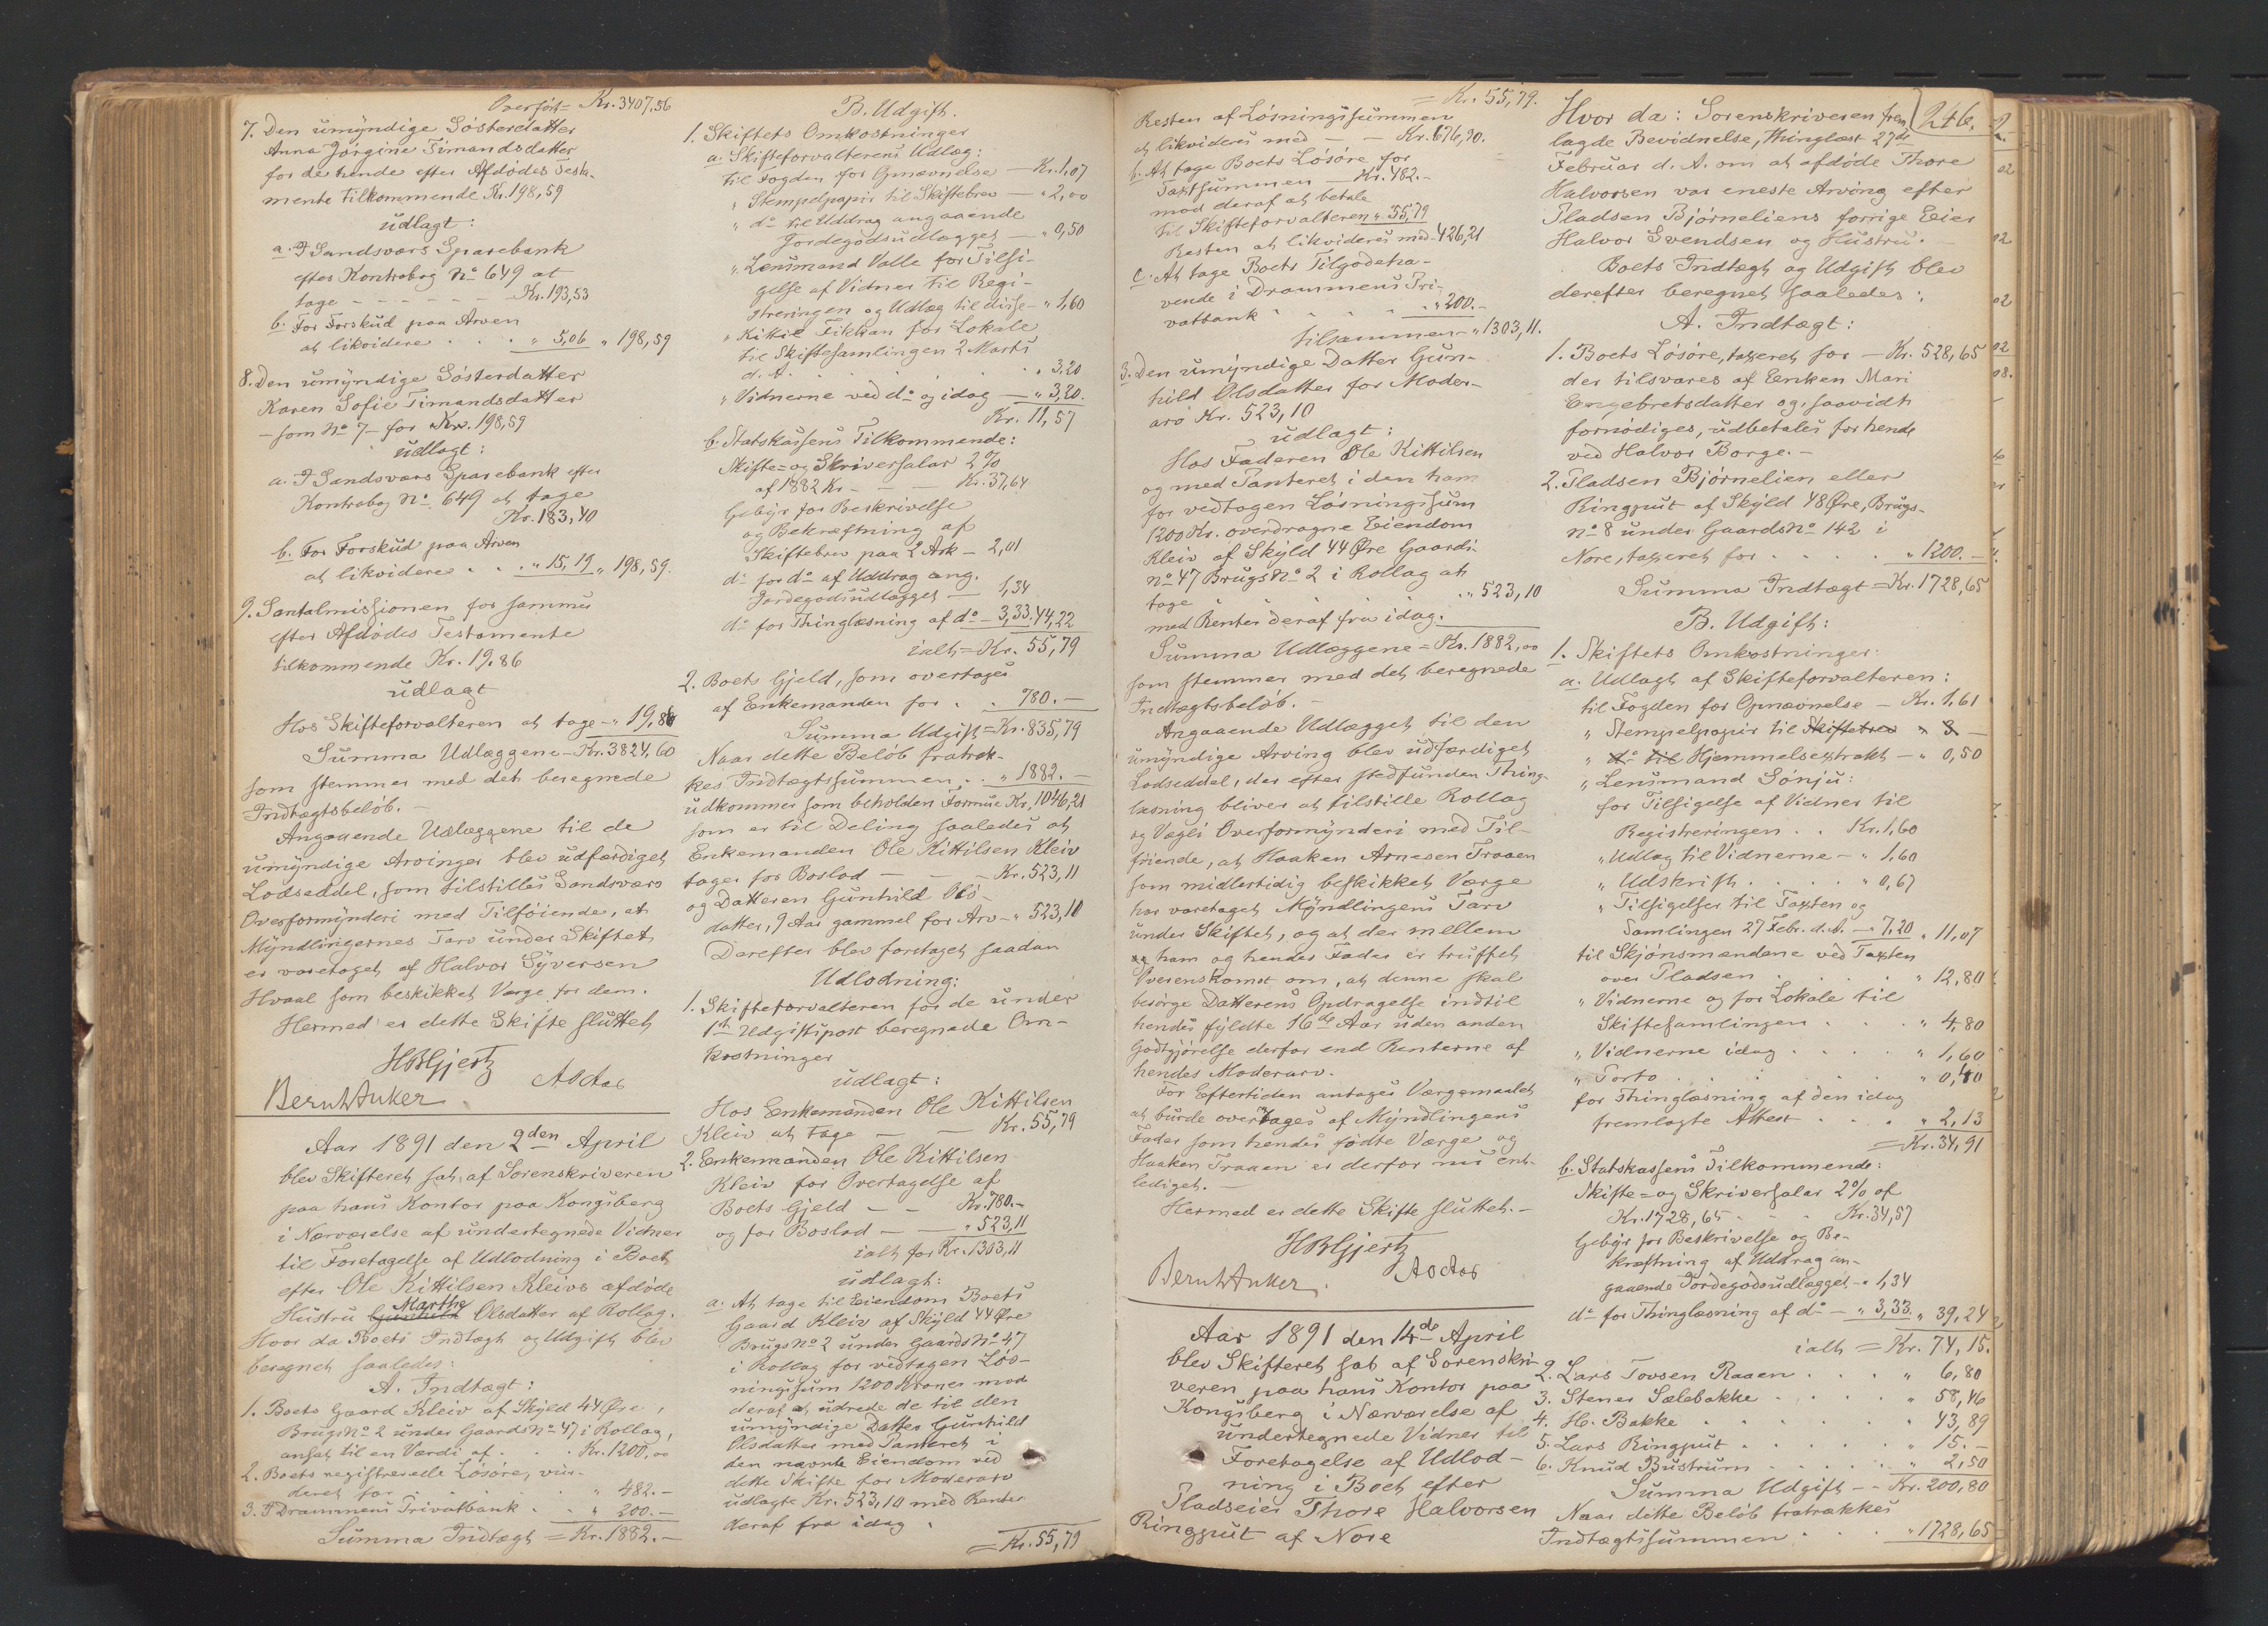 Overført = Kr. 3407,56
7. Den umyndige Søsterdatter
Anna Jørgine Timandsdatter
for de hende efter Afdødes Testa-
mente tilkommende Kr. 198,59
udlagt:
a. I Sandsværs Sparebank
efter Kontrabog No 649 at
tage - - - - - - Kr. 193,53
b. For Forskud paa Arven
at likvidere . . . " 5,06 " 198,59
8. Den umyndige Søsterdatter
Karen Sofie Timandsdatter
- som No 7 - for Kr. 198,59
udlagt:
a. I Sandsværs Sparebank efter
Kontrabog No 649 at tage
Kr. 183,40
b. For Forskud paa Arven
at likvidere . . . " 15,19 " 198,59.
9. Santalmissionen for samme
efter Afdødes Testamente
tilkommende Kr. 19.86
udlagt
Hos Skifteforvalteren at tage - " 19,86
Summa Udlæggene - Kr. 3824,60
som stemmer med det beregnede
Indtægtsbeløb. -
Angaaende Udlæggene til de
umyndige Arvinger blev udfærdiget
Lodseddel, som tilstilles Sandsværs
Overformynderi med Tilføiende, at
Myndlingernes Tarv under Skiftet
er varetaget af Halvor Syversen
Hvaal som beskikket Værge for dem.
Hermed er dette Skifte sluttet
HBGjertz
Bernh Anker
Aar 1891 den 2den April
blev Skifteret sat af Sorenskriveren
paa hans Kontor paa Kongsberg
i Nærværelse af undertegnede Vidner
til Foretagelse af Udlodning i Boet
efter Ole Kittilsen Kleivs afdøde
Hustru Gunhild Marthe Olsdatter af Rollag.
Hvor da Boets Indtægt og Udgift blev
beregnet saaledes:
A. Indtægt:
1. Boets Gaard Kleiv af Skyld 44 Øre,
Brugs No 2 under Gaards No 47 i Rollag,
ansat til en Værdi af . . . Kr. 1200,00
2. Boets registrerede Løsøre, vur-
deret for . . . . " 482.-
3. I Drammens Privatbank . . " 200.-
Summa Indtægt = Kr. 1882.-
B. Udgift.
1. Skiftets Omkostninger
a. Skifteforvalterens Udlæg:
til Fogden for Opnævnelse - Kr. 1,07
" Stempelpapir til Skiftebrev - " 2,00
" do til Uddrag angaaende
Jordegodsudlægget - " 0,50
" Lensmand Valle for Tilsi-
gelse af Vidner til Regi-
streringen og Udlæg til disse - " 1,60
" Kittil Fikkan for Lokale
til Skiftesamlingen 2 Marts
d. A. . . . . . . " 3,20
" Vidnerne ved do og idag - " 3,20.
Kr. 11,57
b. Statskassens Tilkommende:
Skifte= og Skriversalær 2%
af 1882 Kr - - - Kr. 37,64
Gebyr for Beskrivelse
og Bekræftning af
Skiftebrev paa 2 Ark - 2,01
do for do af Uddrag ang.
Jordegodsudlægget - 1,34
do for Thinglæsning af do - 3,33. 44,22
ialt = Kr. 55,79
2. Boets Gjeld, som overtages
af Enkemanden for . . 780.-
Summa Udgift = Kr. 835,79
Naar dette Beløb fratræk-
kes Indtægtssummen . . " 1882.-
udkommer som beholden Formue Kr. 1046,21
som er til Deling saaledes at
Enkemanden Ole Kittilsen Kleiv
tager for Boslod - - - Kr. 523,11
og Datteren Gunhild Ols-
datter, 9 Aar gammel for Arv - " 523,10
Derefter blev foretaget saadan
Udlodning:
1. Skifteforvalteren for de under
1ste Udgiftspost beregnede Om-
kostninger
udlagt:
Hos Enkemanden Ole Kittilsen
Kleiv at tage - - Kr. 55,79
2. Enkemanden Ole Kittilsen
Kleiv for Overtagelse af
Boets Gjeld - - Kr. 780.-
og for Boslod - - " 523,11
ialt for Kr. 1303,11
udlagt:
a. At tage til Eiendom Boets
Gaard Kleiv af Skyld 44 Øre
Brugs No 2 under Gaards No 47
i Rollag for vedtagen Løs-
ningssum 1200 Kroner mod
deraf at udrede de til den
umyndige Datter Gunhild
Olsdatter med Panteret i
den nævnte Eiendom ved
dette Skifte for Moderarv
udlagte Kr. 523,10 med Renter
deraf fra idag.
= Kr. 55,79
= Kr. 55,79.
Resten af Løsningssummen
at likvideres med - - Kr. 676,90.
b. At tage Boets Løsøre for
Taxtsummen - Kr. 482.-
mod deraf at betale
til Skifteforvalteren " 55,79
Resten at likvideres med - 426,21
c. At tage Boets Tilgodeha-
vende i Drammens Pri-
vatbank . . . . . " 200.-
tilsammen - " 1303,11.
3. Den umyndige Datter Gun-
hild Olsdatter for Moder-
arv Kr. 523,10
udlagt:
Hos Faderen Ole Kittilsen
og med Panteret i den ham
for vedtagen Løsningssum
1200 Kr. overdragne Eiendom
Kleiv af Skyld 44 Øre Gaards
No 47 Brugs No 2 i Rollag at
tage . . . . . . " 523,10
med Renter deraf fra idag.
Summa Udlæggene = Kr. 1882,00
som stemmer med det beregnede
Indtægtsbeløb. -
Angaaende Udlægget til den
umyndige Arving blev udfærdiget
Lodseddel, der efter stedfunden Thing-
læsning bliver at tilstille Rollag
og Vægli Overformynderi med Til-
føiende, at Haaken Arnesen Traaen
som midlertidig beskikket Værge
har varetaget Myndlingens Tarv
under Skiftet, og at der mellem
ham og hendes Fader er truffet
Overenskomst om, at denne skal
besørge Datterens Opdragelse indtil
hendes fyldte 16de Aar uden anden
Godtgjørelse derfor end Renterne af
hendes Moderarv.
For Eftertiden antages Værgemaalet
at burde overtages af Myndlingens
Fader som hendes fødte Værge og
Haaken Traaen er derfor nu ent-
lediget. -
Hermed er dette Skifte sluttet. -
HBGjertz
Bernh Anker.
Aar 1891 den 14de April
blev Skifteret sat af Sorenskri-
veren paa hans Kontor paa
Kongsberg i Nærværelse af
undertegnede Vidner til
Foretagelse af Udlod-
ning i Boet efter
Pladseier Thore Halvorsen
Ringput af Nore
246.
Hvor da: Sorenskriveren frem
lagde Bevidnelse, thinglæst 27de
Februar d. A. om at afdøde Thore
Halvorsen var eneste Arving efter
Pladsen Bjørneliens forrige Eier
Halvor Svendsen og Hustru. -
Boets Indtægt og Udgift blev
derefter beregnet saaledes:
A. Indtægt:
1. Boets Løsøre, taxeret for - Kr. 528,65
der tilsvares af Enken Mari
Engebretsdatter og, saavidt
fornødiges, udbetales for hende
ved Halvor Borge. -
2. Pladsen Bjørnelien eller
Ringput af Skyld 48 Øre, Brugs-
no 8 under Gaards No 142 i
Nore, taxeret for . . . . " 1200.-
Summa Indtægt = Kr. 1728,65
B. Udgift:
1. Skiftets Omkostninger:
a. Udlagt af Skifteforvalteren:
til Fogden for Opnævnelse - Kr. 1,61
" Stempelpapir til Skiftebrev " 3 -
" do til Hjemmelsextrakt - " 0,50
" Lensmand Sønju:
for Tilsigelse af Vidner til
Registreringen . . Kr. 1,60
" Udlæg til Vidnerne - " 1,60
" Udskrift . . . . " 0,67
" Tilsigelser til Taxten og
Samlingen 27 Febr. d. A. - " 7,20 " 11,07
til Skjønsmændene ved Taxten
over Pladsen . . . . " 12,80
" Vidnerne og for Lokale til
Skiftesamlingen . . . " 4,80
" Vidnerne idag . . . . " 1,60
" Porto . . . . . . " 0,40
for Thinglæsning af den idag
fremlagte Attest . . . " 2,13
= Kr. 34,91
b. Statskassens Tilkommende:
Skifte= og Skriversalær 2% af
Kr. 1728,65 - - - Kr. 34,57
Gebyr for Beskrivelse og Be-
kræftning af Uddrag an-
gaaende Jordegodsudlægget - " 1,34
do for Thinglæsning af do - " 3,33. " 39,24
ialt = Kr. 74,15.
2. Lars Tovsen Raaen . . . " 6,80
3. Stener Sælebakke . . . . " 58,46
4. H. Bakke . . . . . " 43,89
5. Lars Ringput . . . . . " 15.-
6. Knud Bustrum . . . . . " 2,50
Summa Udgift - - Kr. 200,80
Naar dette Beløb fratrækkes
Indtægtssummen . . . " 1728,65